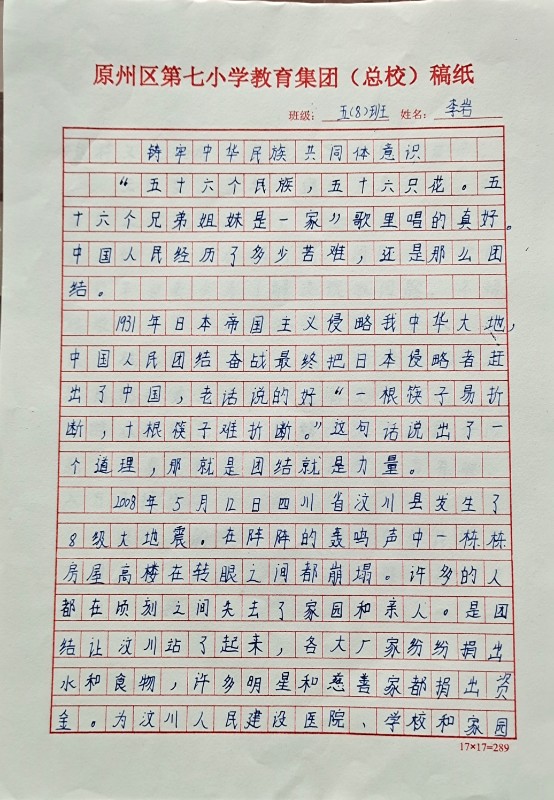 原州区第七小学教育集团（总校）稿纸
班级：五(8)班 姓名：李岩
铸牢中华民族共同体意识
“五十六个民族，五十六只花。五
十六个兄弟姐妹是一家”歌里唱的真好。
中国人民经历了多少苦难，还是那么团
结。
1931年日本帝国主义侵略我中华大地，
中国人民团结奋战最终把日本侵略者赶
出了中国，老话说的好“一根筷子易折
断，十根筷子难折断。”这句话说出了一
个道理，那就是团结就是力量。
2008年5月12日四川省汶川县发生了
8级大地震。在阵阵的轰鸣声中一栋栋
房屋高楼在转眼之间都崩塌。许多的人
都在顷刻之间失去了家园和亲人。是团
结让汶川站了起来，各大厂家纷纷捐出
水和食物，许多明星和慈善家都捐出资
金。为汶川人民建设医院、学校和家园
17×17=289